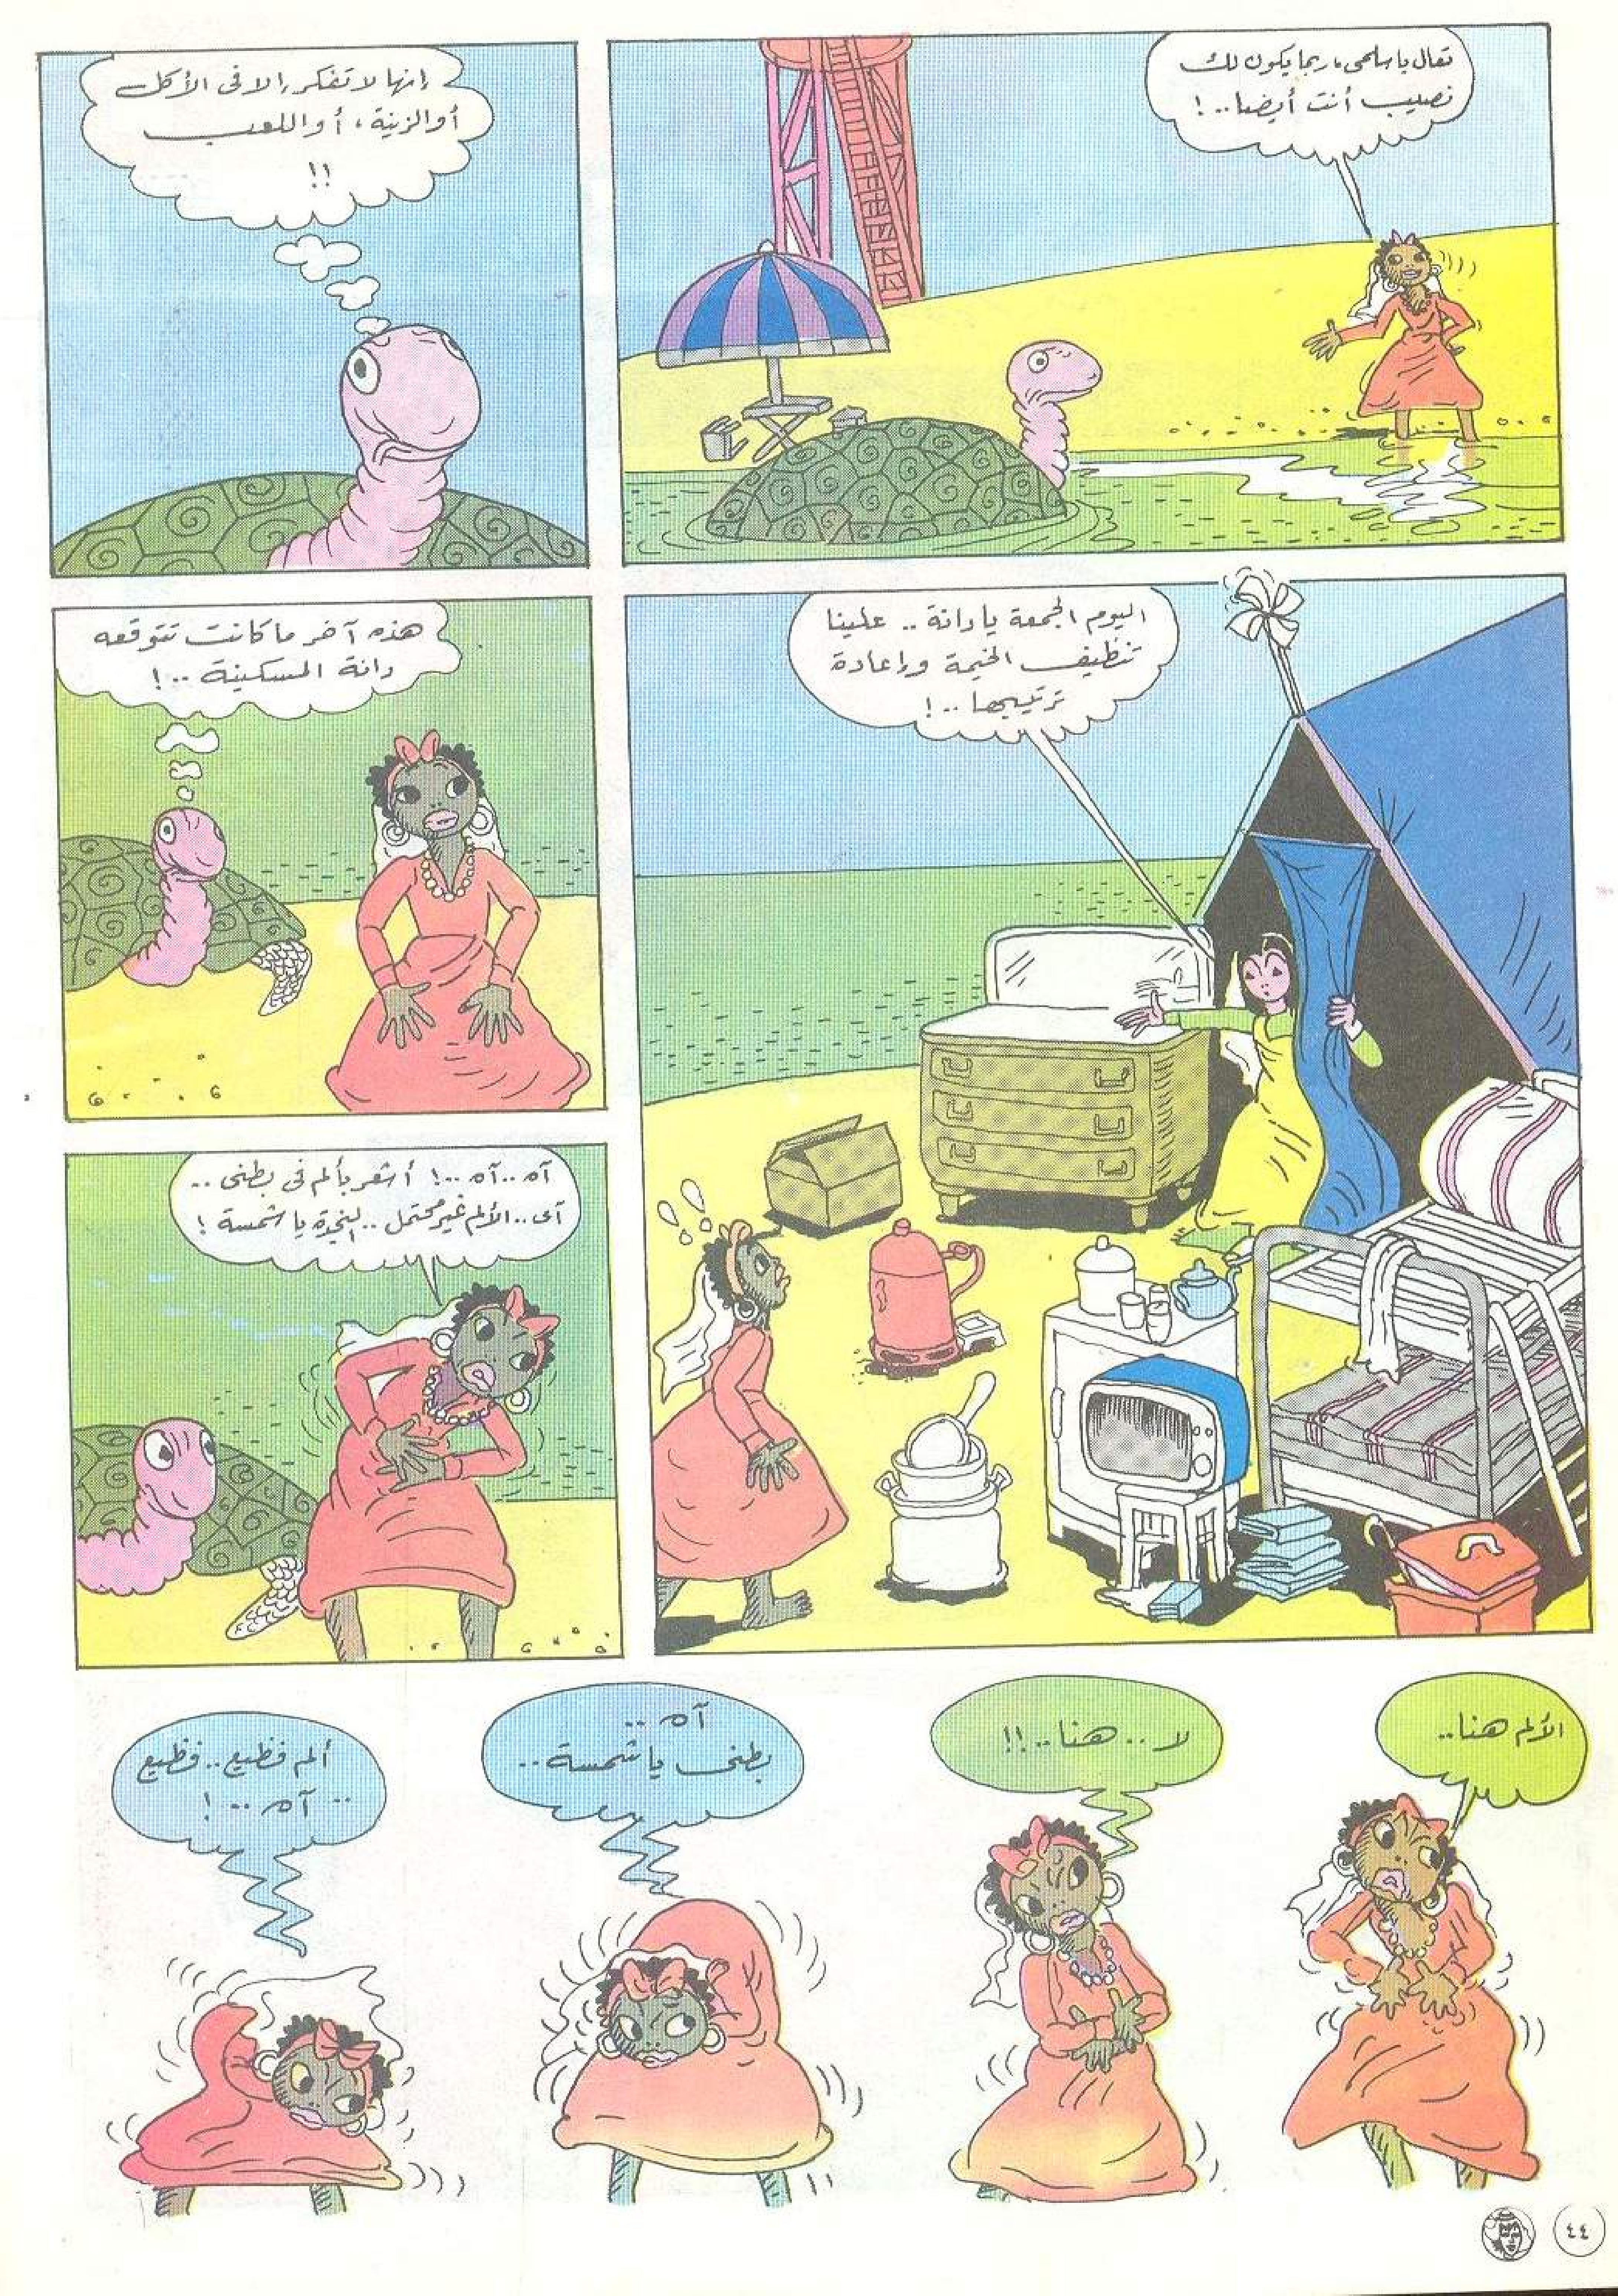 تعال يا سلحى، ربما يكون لك
نصيب أنت أيضا..!
إنها لا تفكر إلا فى الأكل
أو الزينة، أو اللعب
!!
اليوم الجمعة يا دانة .. علينا
تنظيف الخيمة وإعادة
ترتيبها ..!
هذه آخر ما كانت تتوقعه
دانة المسكينة ..!
آه .. آه ..! أشعر بألم فى بطنى ..
آى .. الألم غير محتمل .. النجدة يا شمسة !
الألم هنا..
لا .. هنا..!!
آه ..
بطنى يا شمسة ..
ألم فظيع .. فظيع
.. آه ..!
٤٤